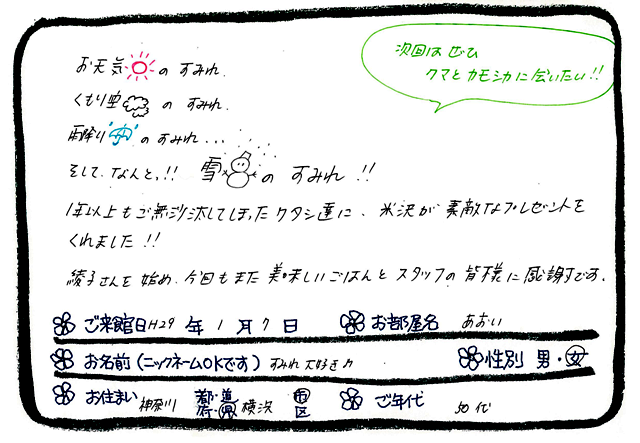 次回は ぜひ
クマと カモシカに 会いたい!!
お天気 の すみれ.
くもり空 の すみれ.
雨降り の すみれ...
そして、なんと、!! 雪 の すみれ !!
1年以上もご無沙汰してしまったワタシ達に、米沢が 素敵なプレゼントを
くれました !!
綾子さんを始め、今回もまた 美味しいごはんと スタッフの 皆様に 感謝です.
ご来館日 H29 年 1 月 7 日 お部屋名 あおい
お名前(ニックネームOKです) すみれ大好き♪ 性別 男・女
お住まい 神奈川 都・道 府・県 横浜 市 区 ご年代 50代